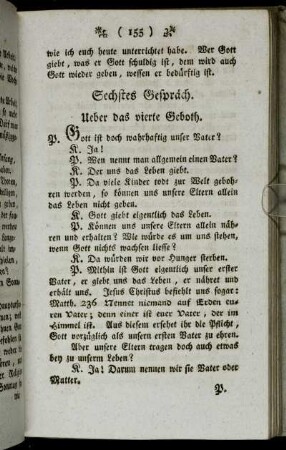 ( 155 )
wie ich euch heute unterrichtet habe. Wer Gott
giebt, was er Gott schuldig ist, dem wird auch
Gott wieder geben, wessen er bedürftig ist.
Sechstes Gespräch.
Ueber das vierte Geboth.
P. Gott ist doch wahrhaftig unser Vater?
K. Ja!
P. Wen nennt man allgemein einen Vater?
K. Der uns das Leben giebt.
P. Da viele Kinder todt zur Welt geboh-
ren werden, so können uns unsere Eltern allein
das Leben nicht geben.
K. Gott giebt eigentlich das Leben.
P. Können uns unsere Eltern allein näh-
ren und erhalten? Wie würde es um uns stehen,
wenn Gott nichts wachsen liesse?
K. Da würden wir vor Hunger sterben.
P. Mithin ist Gott eigentlich unser erster
Vater, er giebt uns das Leben, er nährt und
erhält uns. Jesus Christus befiehlt uns sogar:
Matth. 236 Nennet niemand auf Erden eu-
ren Vater; denn einer ist euer Vater, der im
Himmel ist. Aus diesem ersehet ihr die Pflicht,
Gott vorzüglich als unsern ersten Vater zu ehren.
Aber unsere Eltern tragen doch auch etwas
bey zu unserm Leben?
K. Ja! Darum nennen wir sie Vater oder
Mutter.
P.